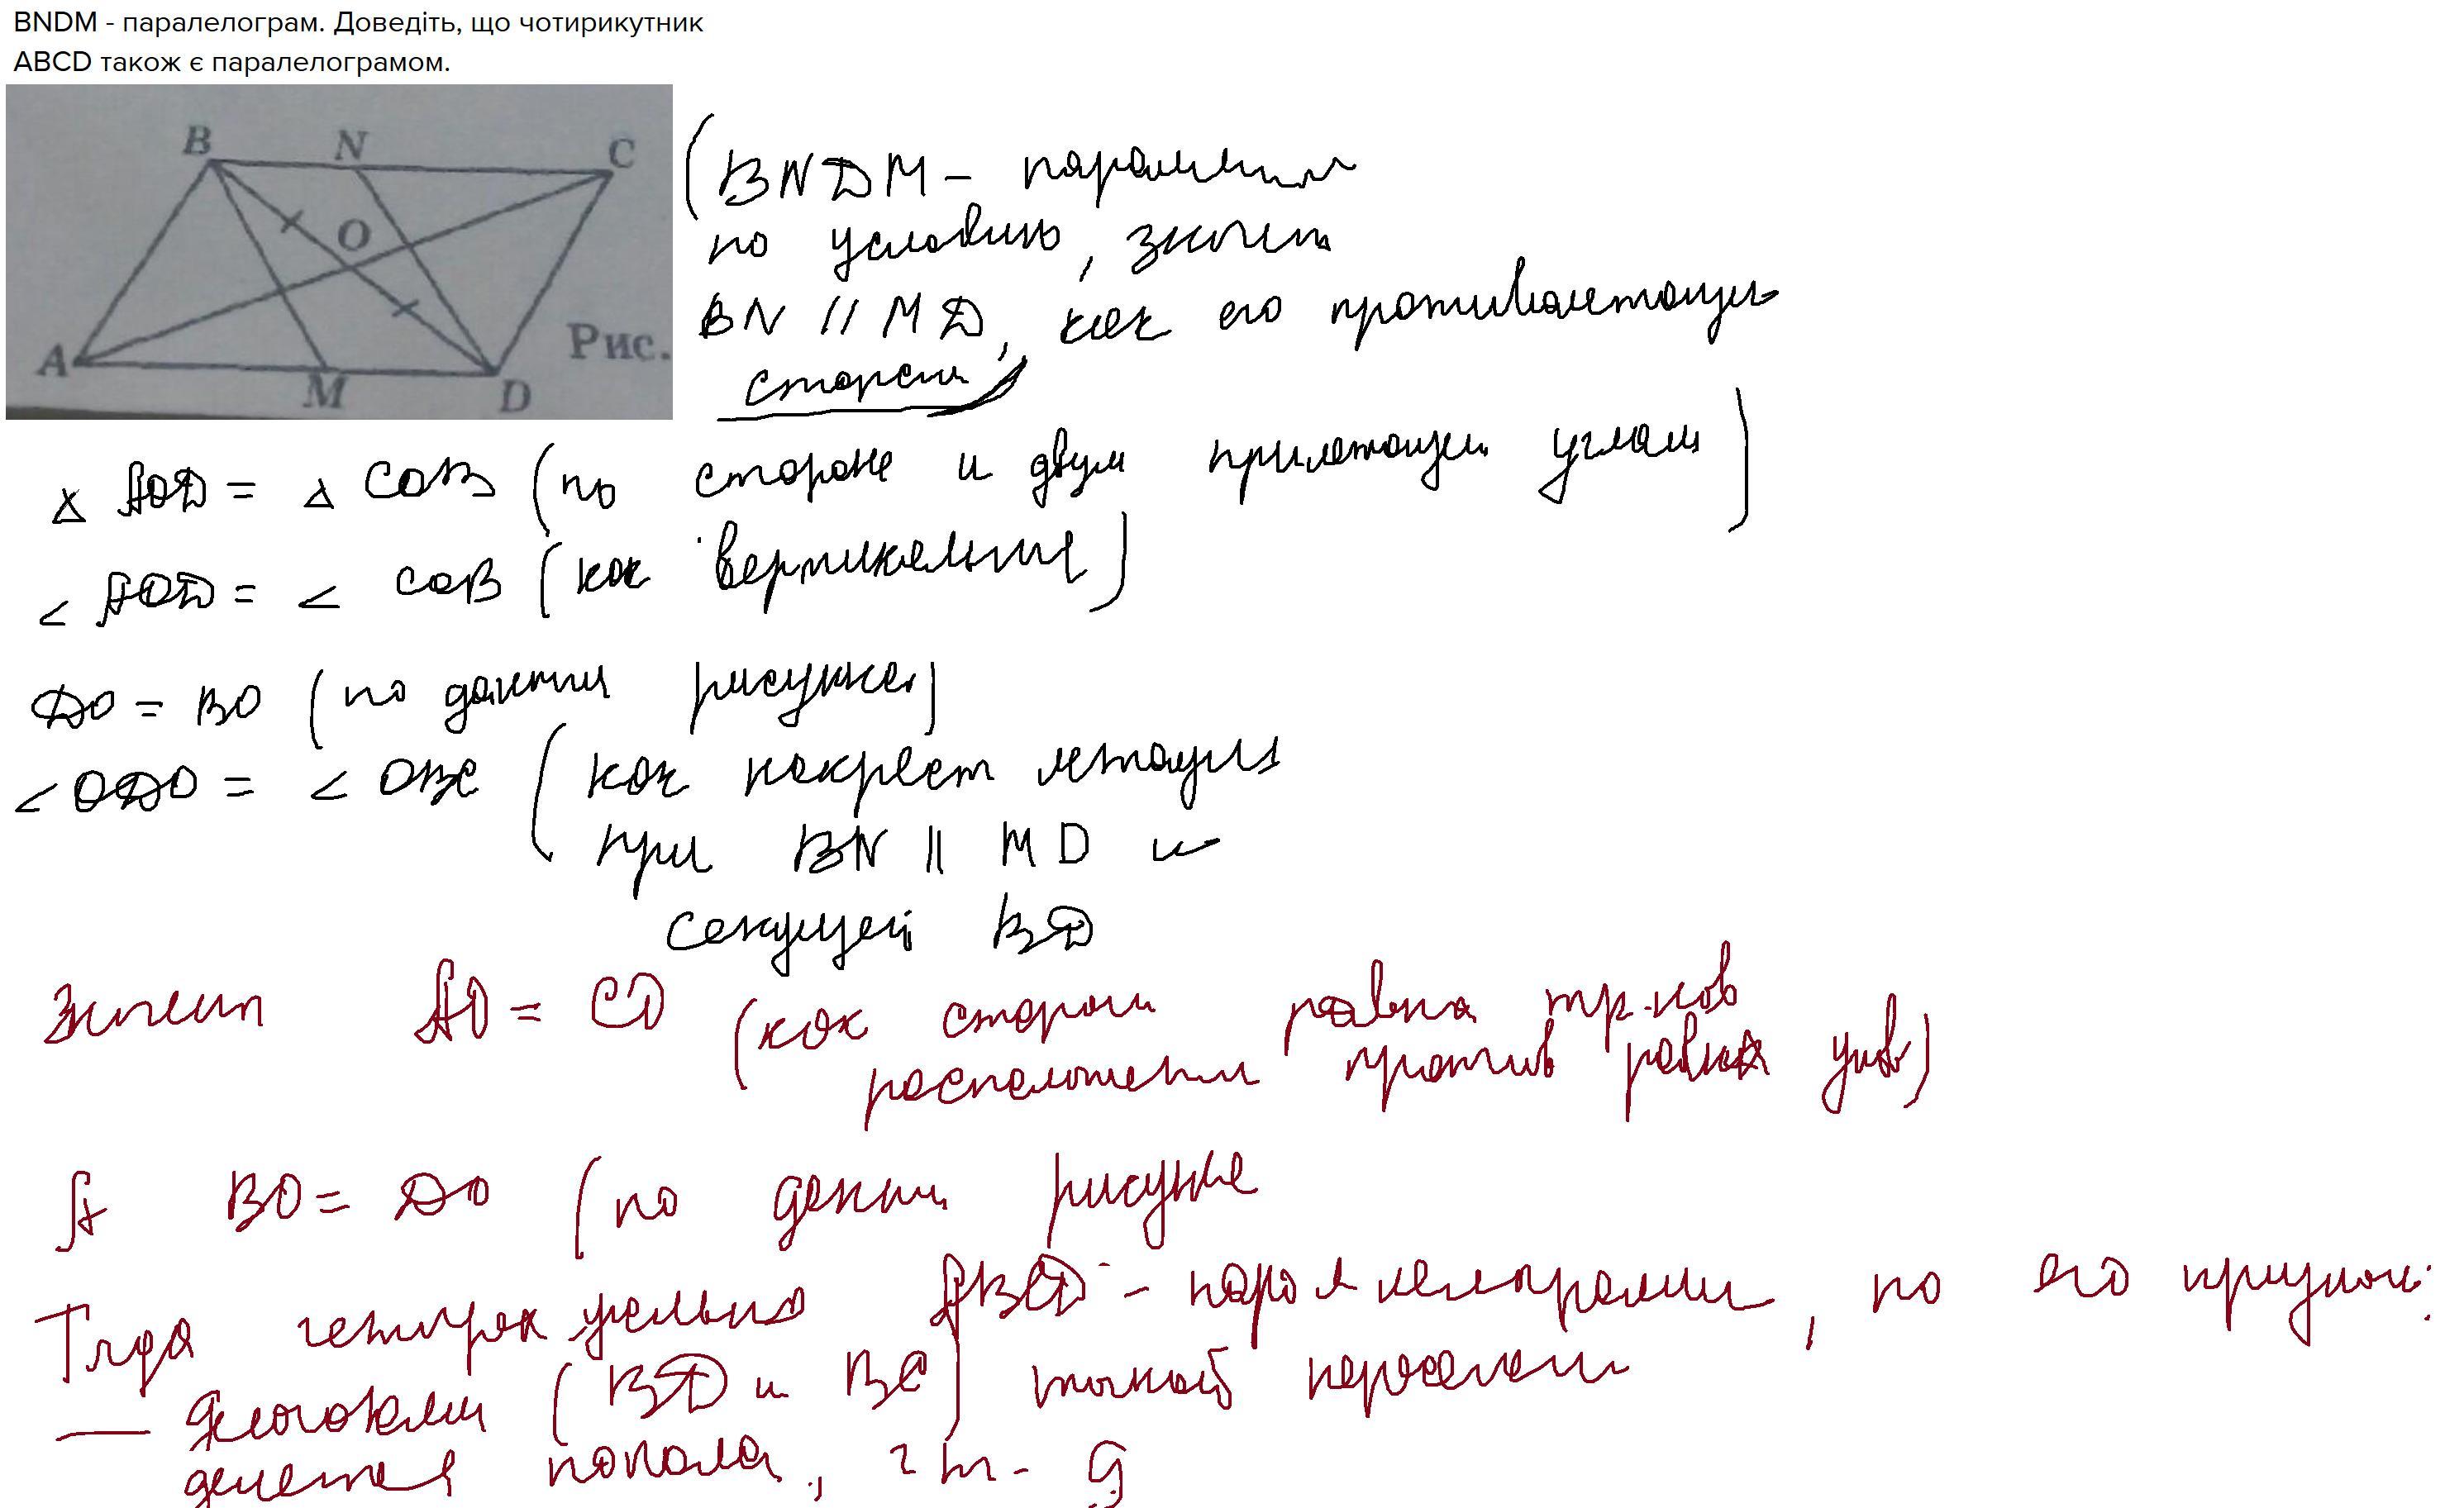 BNDM - паралелограм. Доведіть, що чотирикутник
ABCD також є паралелограмом.
B N C
O
A M D Рис.
(BNDM –
по условию, значит
BN // MD, как его противолежащие
стороны)
△ AOD = △ COB (по стороне и двум прилежащим углам)
∠ AOD = ∠ COB (как вертикальные)
DO = BO (по данным рисунка)
∠ ODO = ∠ OBC (как накрест лежащие
при BN || MD и
секущей BD
Значит AO = CO (как стороны равных тр-ков
расположены против равных углов)
А BO = DO (по данным рисунке
Тогда четырехугольник ABCD - параллелограмм, по его признаку:
— диагонали (BD и BC) точкой пересечен
делется попола, ч т - д